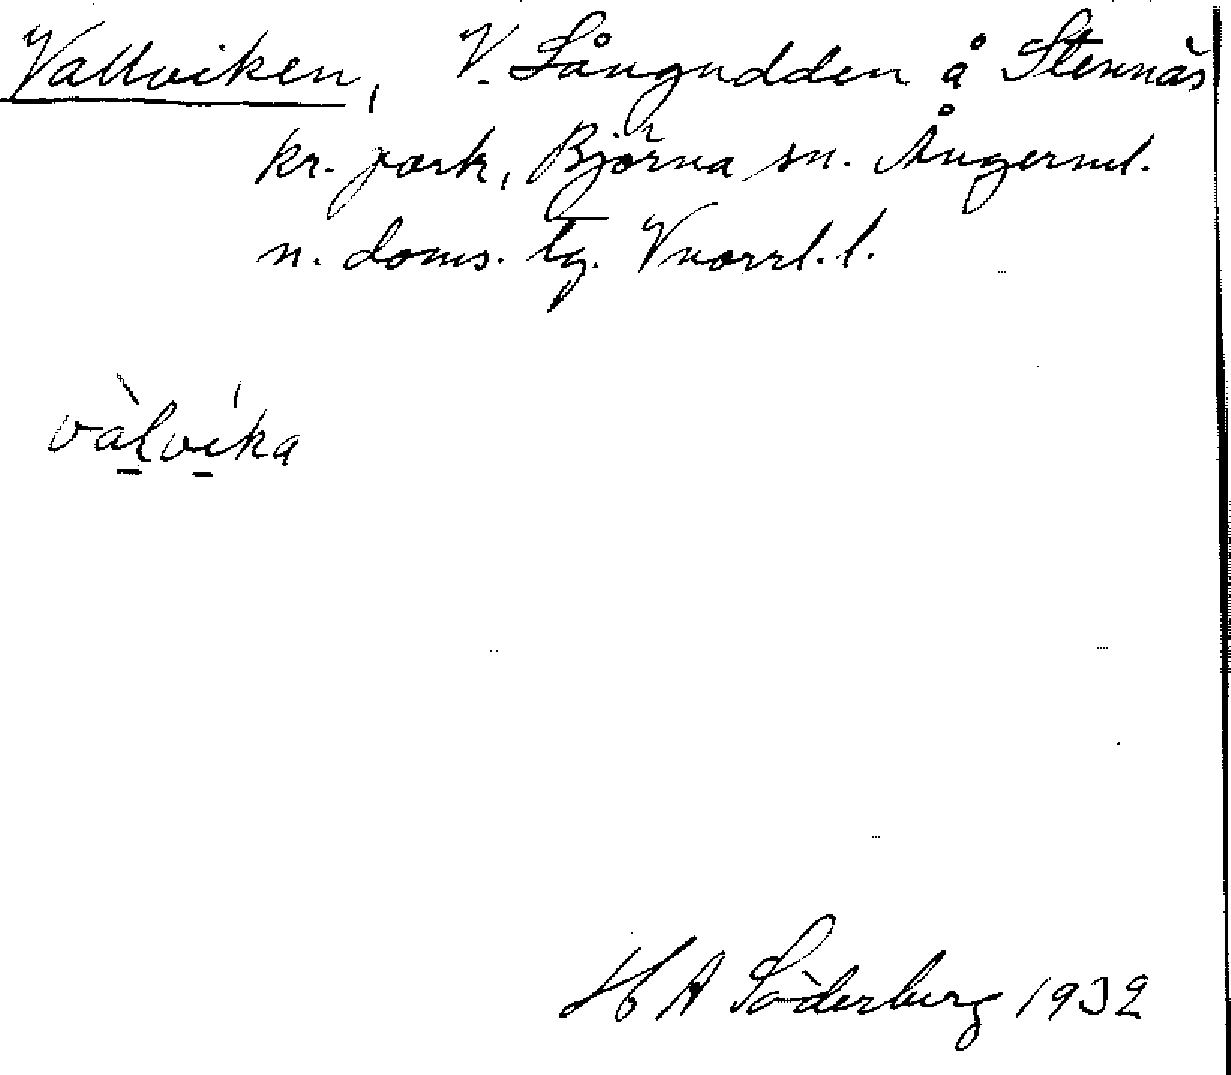 Vallviken, V. Långudden å Stennäs
kr. park, Björna sn. Ångerml.
n. doms. tg. Vnorrl. l.
vàlvíka
H A Söderberg 1932